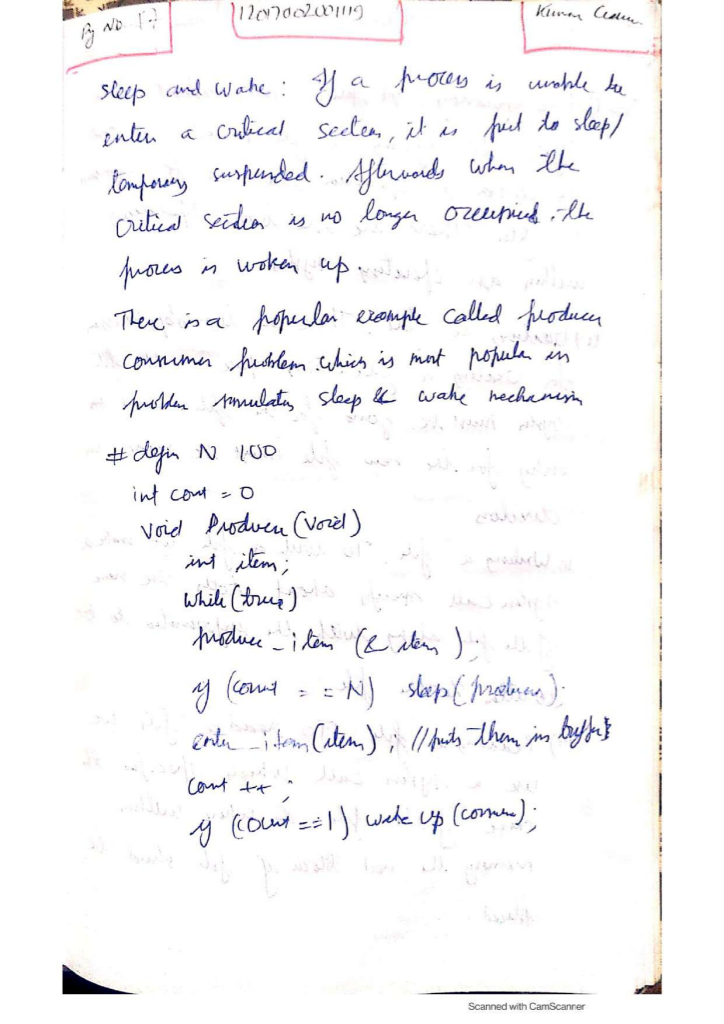 Pg NO 17
12017002001119
Kumar
sleep and wake: If a process is unable to
enter a critical section, it is put to sleep/
temporary suspended. Afterwards when the
critical section is no longer occupied. the
process is woken up.
There is a popular example called producer
consumer problem which is most popular in
problem simulates sleep & wake mechanism
# defin N 100
int cont = 0
void Producer (void)
int item;
while (true)
produce_item (& item)
if (count == N) sleep (producer);
enter_item (item); // puts them in buffer}
Count ++ ;
if (count == 1) wake up (consumer);
Scanned with CamScanner